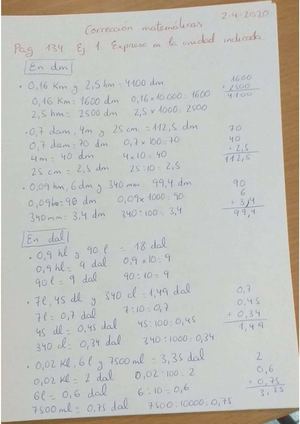 2-4-2020
Corrección matemáticas
Pág 134 Ej 1. Expresa en la unidad indicada
En dm
· 0,16 Km y 2,5 hm = 4100 dm
0,16 Km = 1600 dm 0,16 x 10000 = 1600
2,5 hm = 2500 dm 2,5 x 1000 = 2500
1600
+ 2500
4100
· 0,7 dam, 4m y 25 cm = 112,5 dm
0,7 dam = 70 dm 0,7 x 100 = 70
4m = 40 dm 4 x 10 = 40
25 cm = 2,5 dm 25 : 10 = 2,5
70
40
+ 2,5
112,5
· 0,09 hm, 6 dm y 340 mm = 99,4 dm
0,09 hm = 90 dm 0,09 x 1000 = 90
340 mm = 3,4 dm 340 : 100 = 3,4
90
6
+ 3,4
99,4
En dal
· 0,9 hl y 90 l = 18 dal
0,9 hl = 9 dal 0,9 x 10 = 9
90 l = 9 dal 90 : 10 = 9
· 7l, 45 dl y 340 cl = 1,49 dal
7l = 0,7 dal 7 : 10 = 0,7
45 dl = 0,45 dal 45 : 100 = 0,45
340 cl = 0,34 dal 340 : 1000 = 0,34
0,7
0,45
+ 0,34
1,49
· 0,02 Kl, 6l y 7500 ml = 3,35 dal
0,02 Kl = 2 dal 0,02 · 100 = 2
6l = 0,6 dal 6 : 10 = 0,6
7500 ml = 0,75 dal 7500 : 10000 = 0,75
2
0,6
+ 0,75
3,35